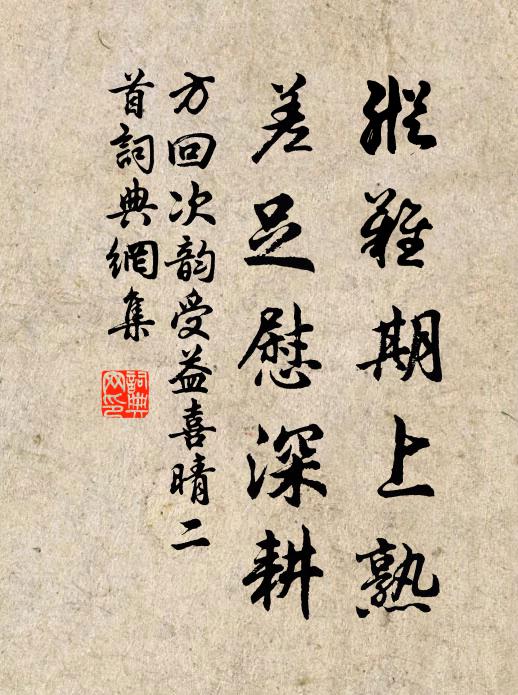 縱難期上熟
差足慰深耕
方回次韵受益喜晴二
首詞典網集
詞典
网印